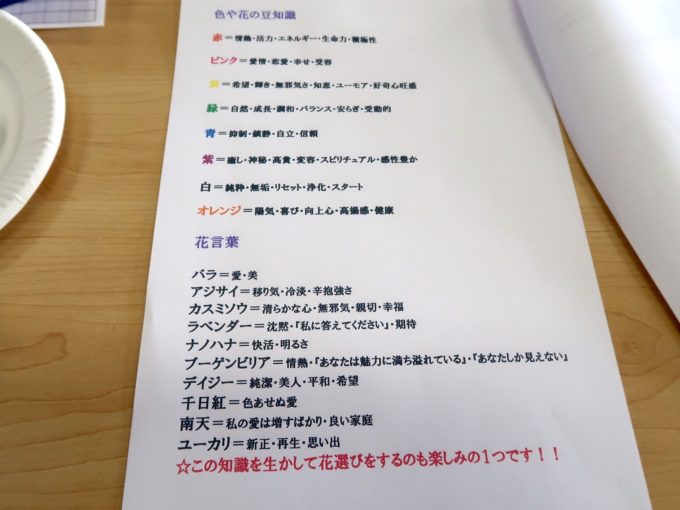 色や花の豆知識
赤＝情熱・活力・エネルギー・生命力・積極性
ピンク＝愛情・恋愛・幸せ・受容
黄＝希望・輝き・無邪気さ・知恵・ユーモア・好奇心旺盛
緑＝自然・成長・調和・バランス・安らぎ・受動的
青＝抑制・鎮静・自立・信頼
紫＝癒し・神秘・高貴・変容・スピリチュアル・感性豊か
白＝純粋・無垢・リセット・浄化・スタート
オレンジ＝陽気・喜び・向上心・高揚感・健康
花言葉
バラ＝愛・美
アジサイ＝移り気・冷淡・辛抱強さ
カスミソウ＝清らかな心・無邪気・親切・幸福
ラベンダー＝沈黙・『私に答えてください』・期待
ナノハナ＝快活・明るさ
ブーゲンビリア＝情熱・『あなたは魅力に満ち溢れている』・『あなたしか見えない』
デイジー＝純潔・美人・平和・希望
千日紅＝色あせぬ愛
南天＝私の愛は増すばかり・良い家庭
ユーカリ＝新正・再生・思い出
☆この知識を生かして花選びをするのも楽しみの1つです！！